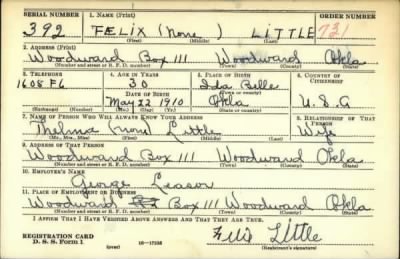 SERIAL NUMBER 1. NAME (Print) ORDER NUMBER
392 FELIX (None) LITTLE 731
(First) (Middle) (Last)
2. ADDRESS (Print)
Woodward Box 111 Woodward Okla
(Number and street or R. F. D. number) (Town) (County) (State)
3. TELEPHONE 4. AGE IN YEARS 5. PLACE OF BIRTH 6. COUNTRY OF CITIZENSHIP
1608 F6 30 Ida Belle
DATE OF BIRTH (Town or county)
May 22 1910 Okla U.S.A
(Exchange) (Number) (Mo.) (Day) (Yr.) (State or country)
7. NAME OF PERSON WHO WILL ALWAYS KNOW YOUR ADDRESS 8. RELATIONSHIP OF THAT PERSON
Thelma (Non) Little Wife
(Mr., Mrs., Miss) (First) (Middle) (Last)
9. ADDRESS OF THAT PERSON
Woodward Box 111 Woodward Okla
(Number and street or R. F. D. number) (Town) (County) (State)
10. EMPLOYER'S NAME
George Leasor
11. PLACE OF EMPLOYMENT OR BUSINESS
Woodward Woodward Okla
(Number and street or R. F. D. number) (Town) (County) (State)
I AFFIRM THAT I HAVE VERIFIED ABOVE ANSWERS AND THAT THEY ARE TRUE.
REGISTRATION CARD
D. S. S. Form 1 (over) 16—17105 Little
(Registrant's signature)